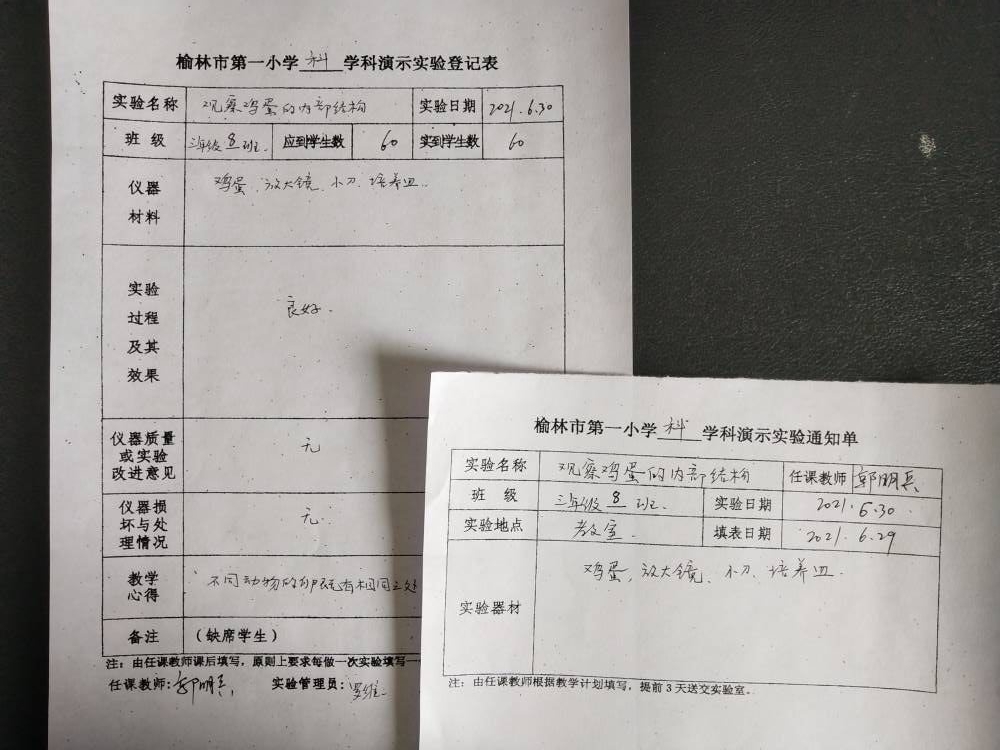 榆林市第一小学 科 学科演示实验登记表
实验名称 观察鸡蛋的内部结构 实验日期 2021.6.30
班 级 三年级 8 班. 应到学生数 60 实到学生数 60
仪器 鸡蛋、放大镜、小刀、培养皿.
材料
实验 良好.
过程
及其
效果
仪器质量 无
或实验
改进意见
仪器损 无.
坏与处
理情况
教学 不同动物的卵既有相同之处
心得
备注 (缺席学生)
注：由任课教师课后填写，原则上要求每做一次实验填写一
任课教师: 郭明兵 实验管理员: 罗维
榆林市第一小学 科 学科演示实验通知单
实验名称 观察鸡蛋的内部结构 任课教师 郭明兵
班 级 三年级 8 班. 实验日期 2021.6.30.
实验地点 教室. 填表日期 2021.6.29
实验器材 鸡蛋、放大镜、小刀、培养皿.
注：由任课教师根据教学计划填写，提前3天送交实验室。